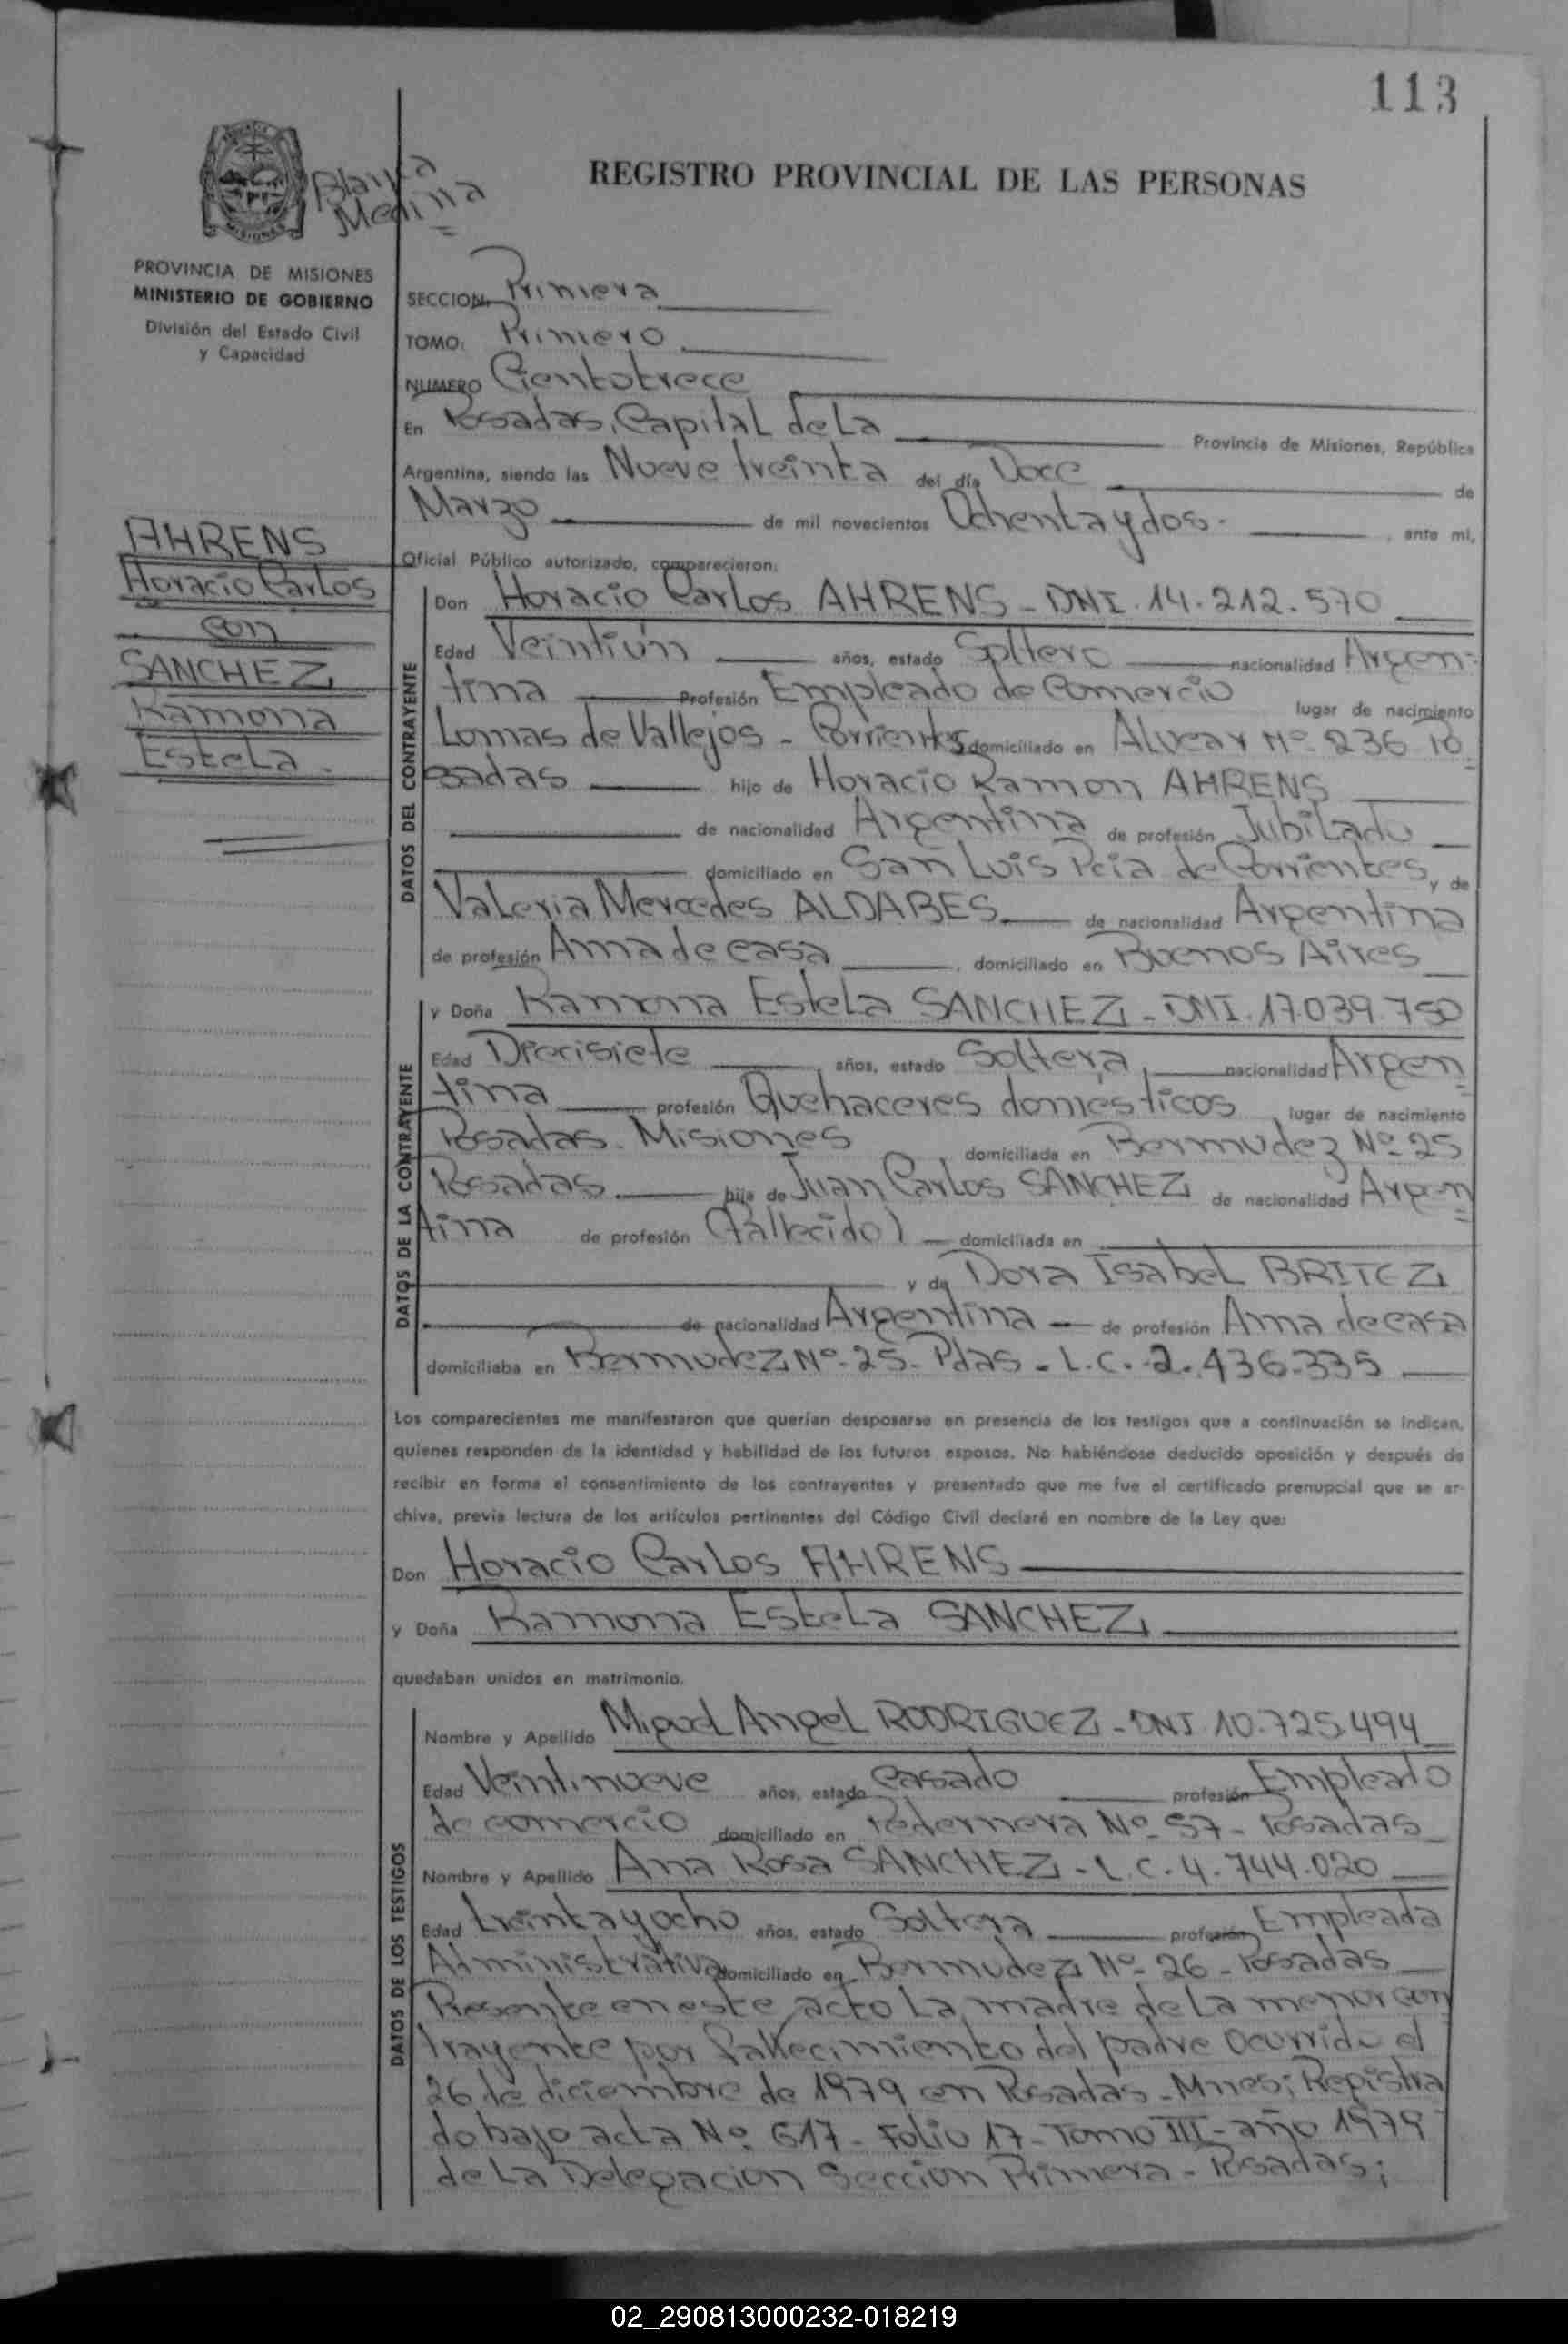 113
Blanca
Medina
REGISTRO PROVINCIAL DE LAS PERSONAS
MISIONES
PROVINCIA DE MISIONES
MINISTERIO DE GOBIERNO
División del Estado Civil
y Capacidad
SECCION: Primera
TOMO: Primero
NUMERO Cientotrece
En Posadas, Capital de La Provincia de Misiones, República
Argentina, siendo las Nueve treinta del día Doce de
Marzo de mil novecientos Ochentaydos.- , ante mí,
Oficial Público autorizado, comparecieron:
AHRENS
Horacio Carlos
con
SANCHEZ
Ramona
Estela.-
DATOS DEL CONTRAYENTE
Don Horacio Carlos AHRENS - DNI. 14.212.570
Edad Veintiún años, estado Soltero nacionalidad Argen-
tina Profesión Empleado de Comercio lugar de nacimiento
Lomas de Vallejos - Corrientes domiciliado en Alvear Nº 236 Po
sadas hijo de Horacio Ramon AHRENS
de nacionalidad Argentina de profesión Jubilado
domiciliado en San Luis Pcia de Corrientes, y de
Valeria Mercedes ALDABES de nacionalidad Argentina
de profesión Ama de casa , domiciliado en Buenos Aires
DATOS DE LA CONTRAYENTE
y Doña Ramona Estela SANCHEZ - DNI. 17.039.750
Edad Diecisiete años, estado Soltera, nacionalidad Argen
tina profesión Quehaceres domésticos, lugar de nacimiento
Posadas. Misiones, domiciliada en Bermudez Nº 25
Posadas. hija de Juan Carlos SANCHEZ de nacionalidad Argen
tina de profesión (Fallecido) domiciliada en
y de Dora Isabel BRITEZ
de nacionalidad Argentina de profesión Ama de casa
domiciliaba en Bermudez Nº. 25. Pdas - L.C. 2.436.335
Los comparecientes me manifestaron que querían desposarse en presencia de los testigos que a continuación se indican,
quienes responden de la identidad y habilidad de los futuros esposos. No habiéndose deducido oposición y después de
recibir en forma el consentimiento de los contrayentes y presentado que me fue el certificado prenupcial que se ar-
chiva, previa lectura de los artículos pertinentes del Código Civil declaré en nombre de la Ley que:
Don Horacio Carlos AHRENS
y Doña Ramona Estela SANCHEZ
quedaban unidos en matrimonio.
DATOS DE LOS TESTIGOS
Nombre y Apellido Miguel Angel RODRIGUEZ - DNI. 10.725.494
Edad Veintinueve años, estado Casado profesión Empleado
de comercio domiciliado en Pedernera Nº 57 - Posadas
Nombre y Apellido Ana Rosa SANCHEZ - L.C. 4.744.020
Edad treintayocho años, estado Soltera profesión Empleada
Administrativa domiciliado en Bermudez Nº 26 - Posadas
Presente en este acto La madre de La menor con
trayente por fallecimiento del padre ocurrido el
26 de diciembre de 1979 en Posadas - Mnes; Registra
do bajo acta Nº 617 - Folio 17 - Tomo III - año 1979
de La Delegacion Seccion Primera - Posadas;
02_290813000232-018219